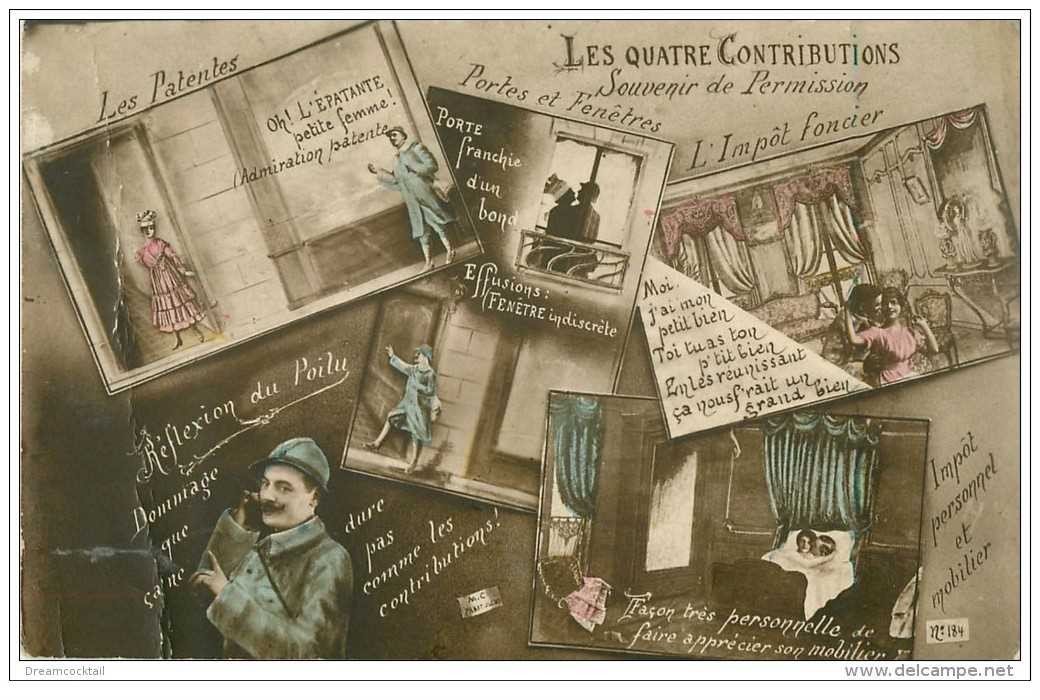 LES QUATRE CONTRIBUTIONS
Souvenir de Permission
Les Patentes
Oh! L'ÉPATANTE
petite femme!
(Admiration patente
Portes et Fenêtres
PORTE
franchie
d'un
bond
Effusions:
FENÊTRE indiscrète
L'Impôt foncier
Moi.
j'ai mon
petit bien
Toi tu as ton
p'tit bien
En les réunissant
ça nous f'rait un
grand bien
Réflexion du Poilu
Dommage
que
ça ne
dure
pas
comme les
contributions!
Impôt
personnel
et
mobilier
Façon très personnelle de
faire apprécier son mobilier
M.C
N° 184
Dreamcocktail
delcampe.net